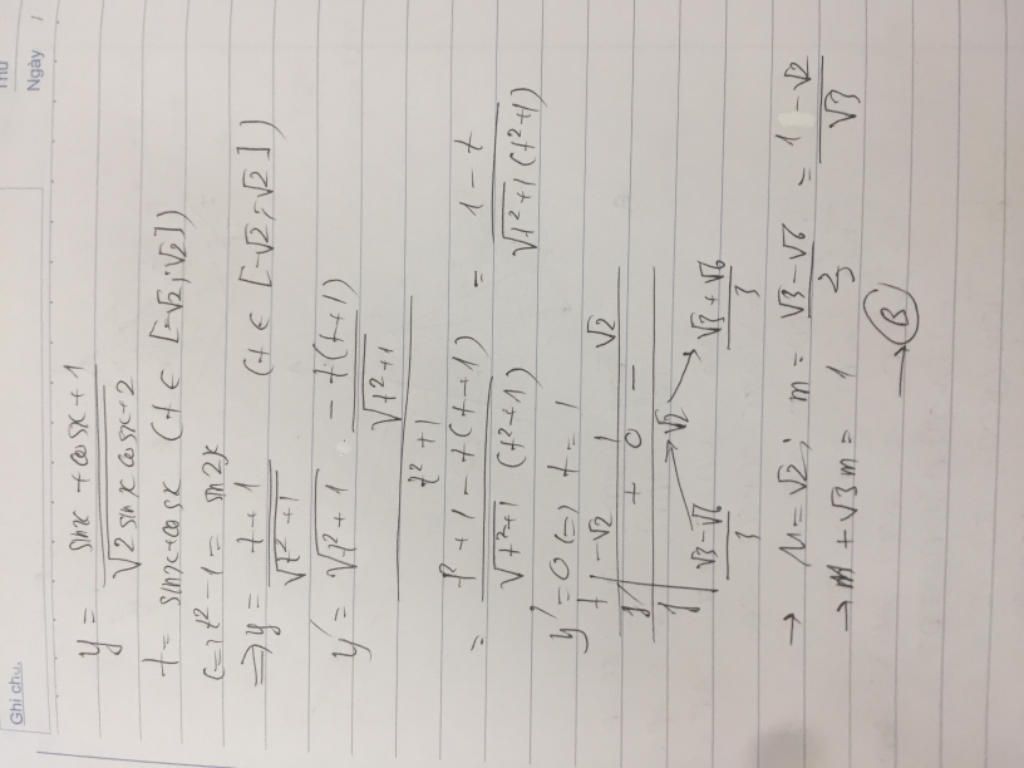 Thứ
Ngày
Ghi chú.
y = (sinx + cosx + 1)/√(2 sin x cosx + 2)
t = sinx + cosx (t ∈ [-√2; √2])
(=) t² - 1 = sin 2x
=> y = (t + 1)/√(t² + 1) (t ∈ [-√2; √2])
y' = (√(t² + 1) - t(t+1)/√(t² + 1))/(t² + 1)
= (t² + 1 - t(t+1))/(√(t²+1) (t²+1)) = (1 - t)/(√(t²+1) (t²+1))
y' = 0 (=) t = 1
t | -√2 1 √2
y' | + 0 -
y | (√3 - √6)/3 → √2 → (√3 + √6)/3
→ M = √2 ; m = (√3 - √6)/3 = (1 - √2)/√3
→ M + √3 m = 1
→ B